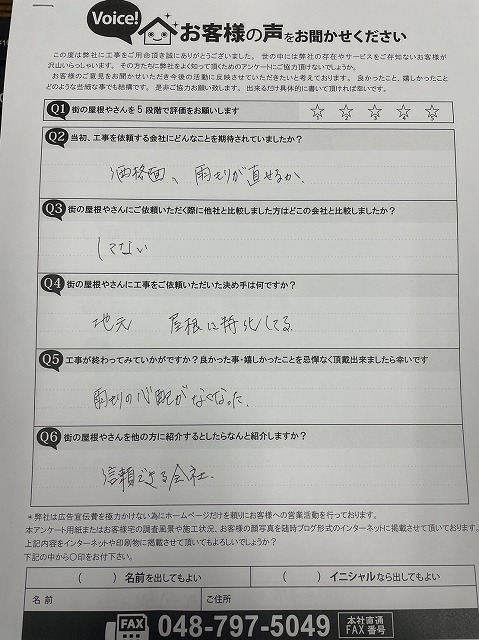 Voice!
お客様の声をお聞かせください
この度は弊社に工事をご用命頂き誠にありがとうございました。世の中には弊社の存在やサービスをご存知ないお客様が
沢山いらっしゃいます。その方たちに弊社をよく知って頂くためのアンケートにご協力頂けないでしょうか。
お客様のご意見をお聞かせいただき今後の活動に反映させていただきたいと考えております。良かったこと、嬉しかったこと
どのような些細な事でも結構です。是非ご協力お願い致します。出来るだけ具体的に書いて頂ければ幸いです。
Q1 街の屋根やさんを5段階で評価をお願いします ☆ ☆ ☆ ☆ ☆
Q2 当初、工事を依頼する会社にどんなことを期待されていましたか?
価格面、雨もりが直せるか。
Q3 街の屋根やさんにご依頼いただく際に他社と比較しました方はどこの会社と比較しましたか?
してない
Q4 街の屋根やさんに工事をご依頼いただいた決め手は何ですか?
地元 屋根に特化してる
Q5 工事が終わってみていかがですか?良かった事・嬉しかったことを忌憚なく頂戴出来ましたら幸いです
雨もりの心配がなくなった.
Q6 街の屋根やさんを他の方に紹介するとしたらなんと紹介しますか?
信頼できる会社.
*弊社は広告宣伝費を極力かけない為にホームページだけを頼りにお客様への営業活動を行っております。
本アンケート用紙またはお客様宅の調査風景や施工状況、お客様の顔写真を随時ブログ形式のインターネットに掲載させて頂いております。
上記内容をインターネットや印刷物に掲載させて頂いてもよろしいでしょうか?
下記の中から〇印をお付下さい。
( ) 名前を出してもよい ( ) イニシャルなら出してもよい
名前 ご住所
FAX 048-797-5049 本社直通 FAX番号